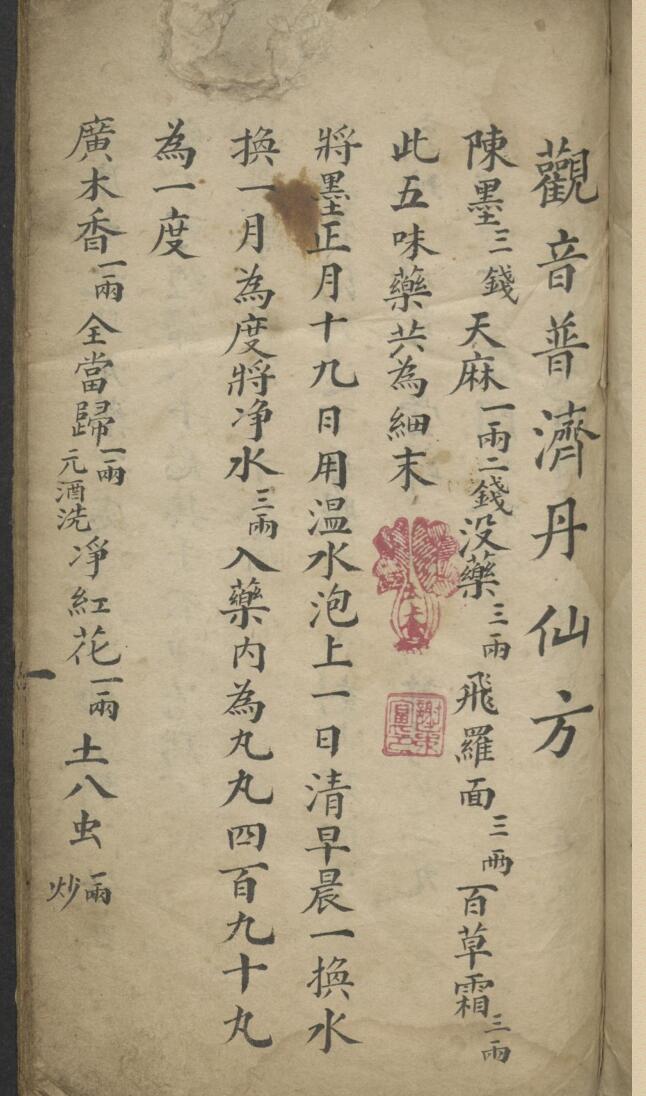 觀音普濟丹仙方
陳墨三錢天麻一兩二錢没藥三兩飛羅面三兩百草霜三兩
此五味藥共為細末
將墨正月十九日用温水泡上一日清早晨一換水
換一月為度將净水三兩入藥内為丸丸四百九十丸
為一度
廣木香一兩全當歸一兩元酒洗净紅花一兩土八虫一兩炒